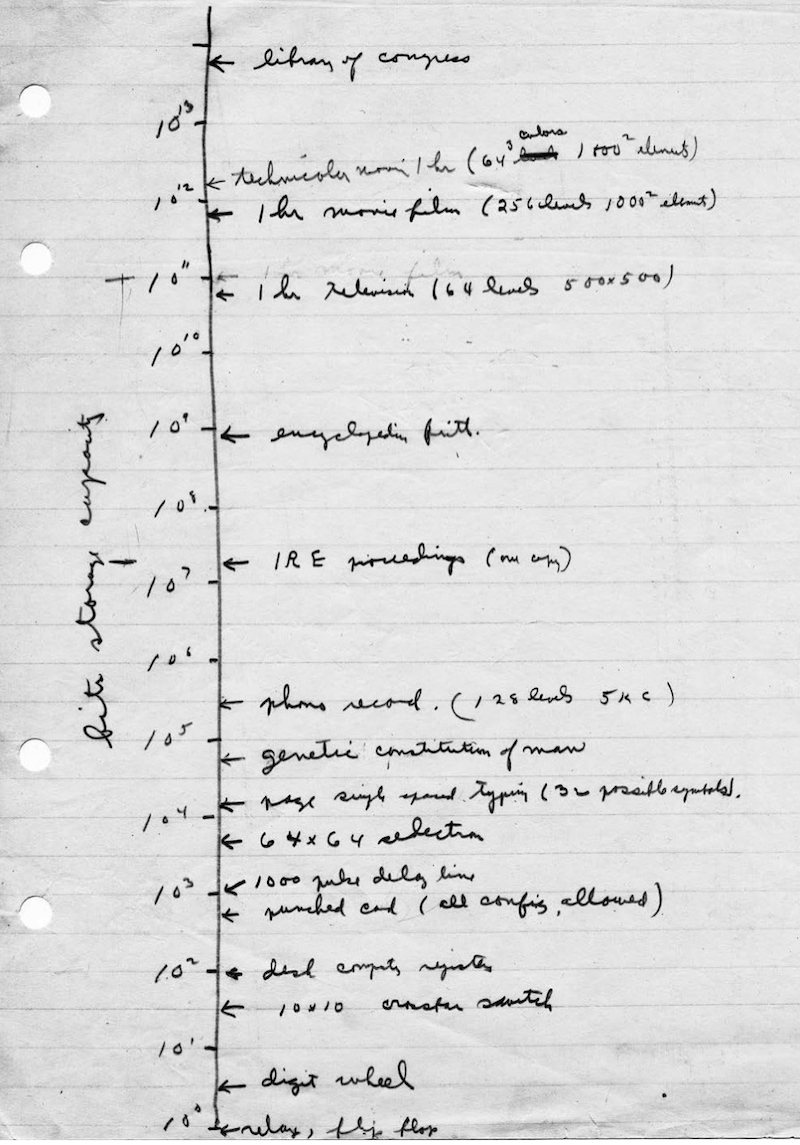 ← library of congress
10¹³
colors
← technicolor movie 1 hr (64³ 1000² elements)
10¹²
← 1 hr movie film (256 levels 1000² elements)
1 hr movie film
10¹¹
← 1 hr television (64 levels 500x500)
10¹⁰
10⁹ ← encyclopedia britt.
10⁸
← IRE proceedings (one copy)
10⁷
10⁶
← phono record. (128 levels 5 KC)
10⁵
← genetic constitution of man
← page single spaced typing (32 possible symbols).
10⁴
← 64 x 64 selectron
← 1000 pulse delay line
10³
← punched card (all config. allowed)
10² ← desk computer register
← 10x10 crossbar switch
10¹
← digit wheel
10⁰ ← relay, flip flop
bits storage capacity